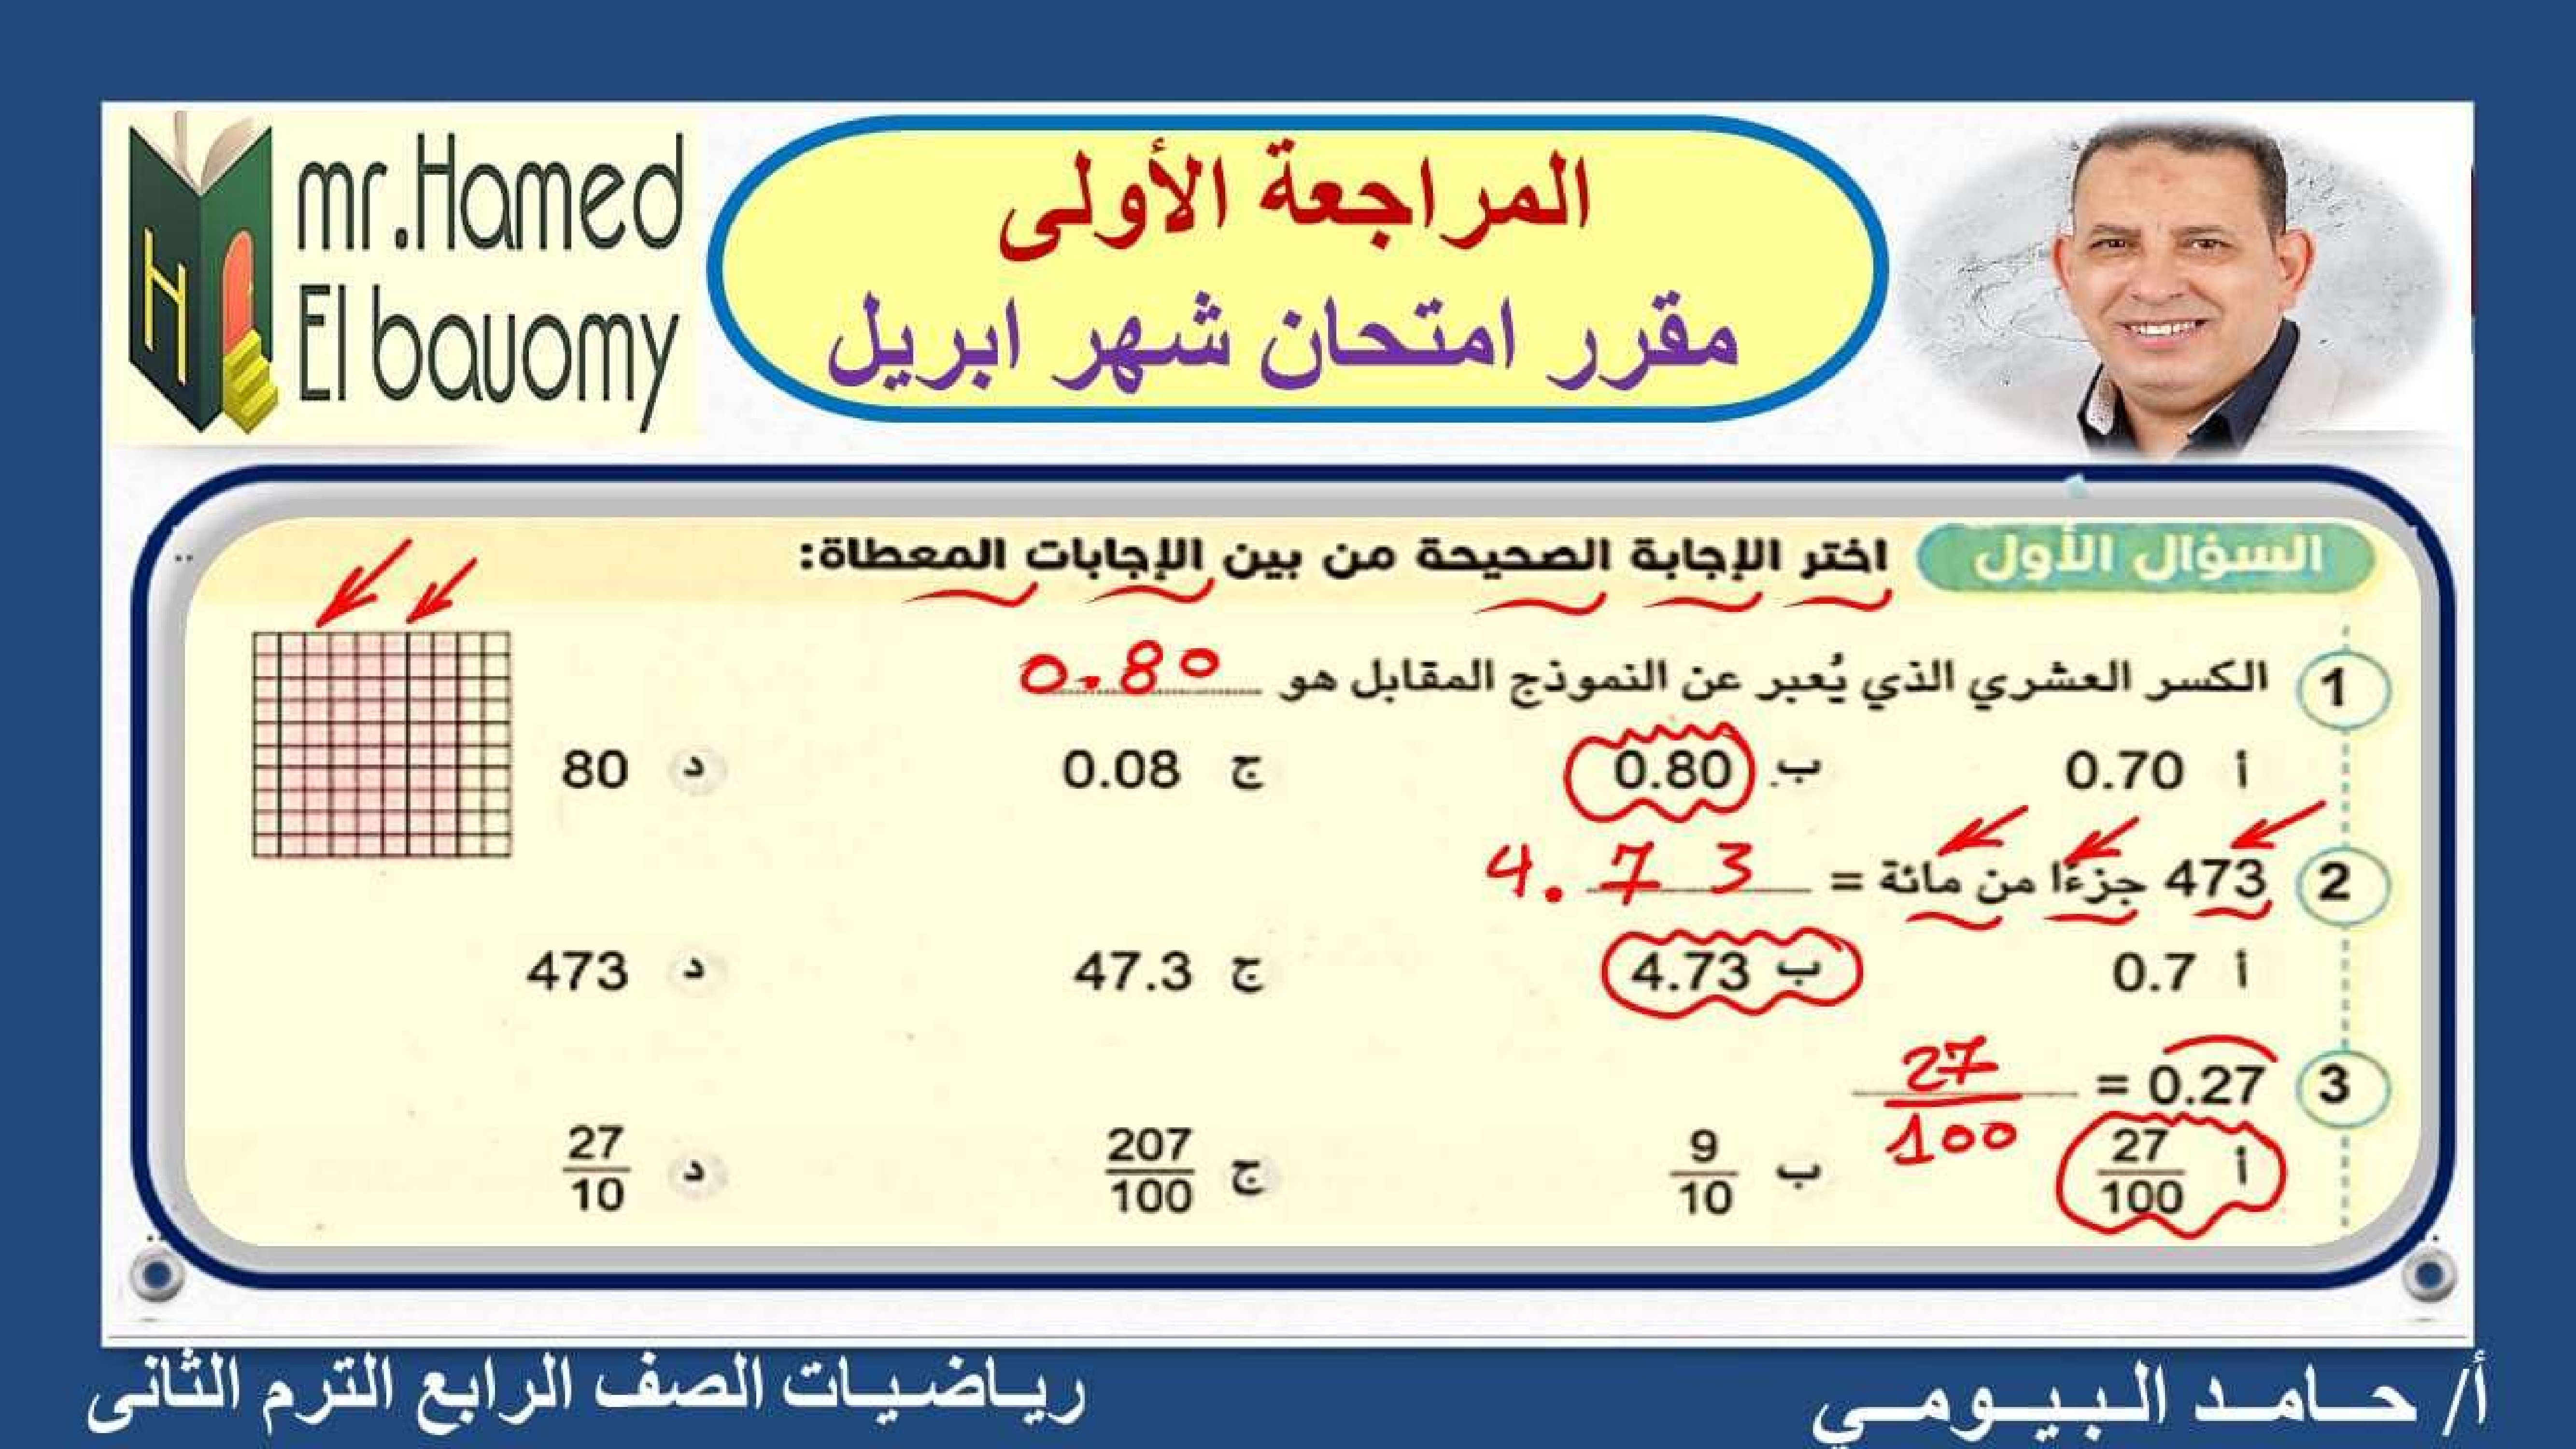 mr.Hamed
El bauomy
المراجعة الأولى
مقرر امتحان شهر ابريل
السؤال الأول اختر الإجابة الصحيحة من بين الإجابات المعطاة:
1 الكسر العشري الذي يُعبر عن النموذج المقابل هو 0.80
أ 0.70 ب 0.80 ج 0.08 د 80
2 473 جزءًا من مائة = 4.73
أ 0.7 ب 4.73 ج 47.3 د 473
3 0.27 = 27/100
أ 27/100 ب 9/10 ج 207/100 د 27/10
أ/ حـامـد الـبـيـومـي
ريـاضـيـات الصف الرابع الترم الثانى